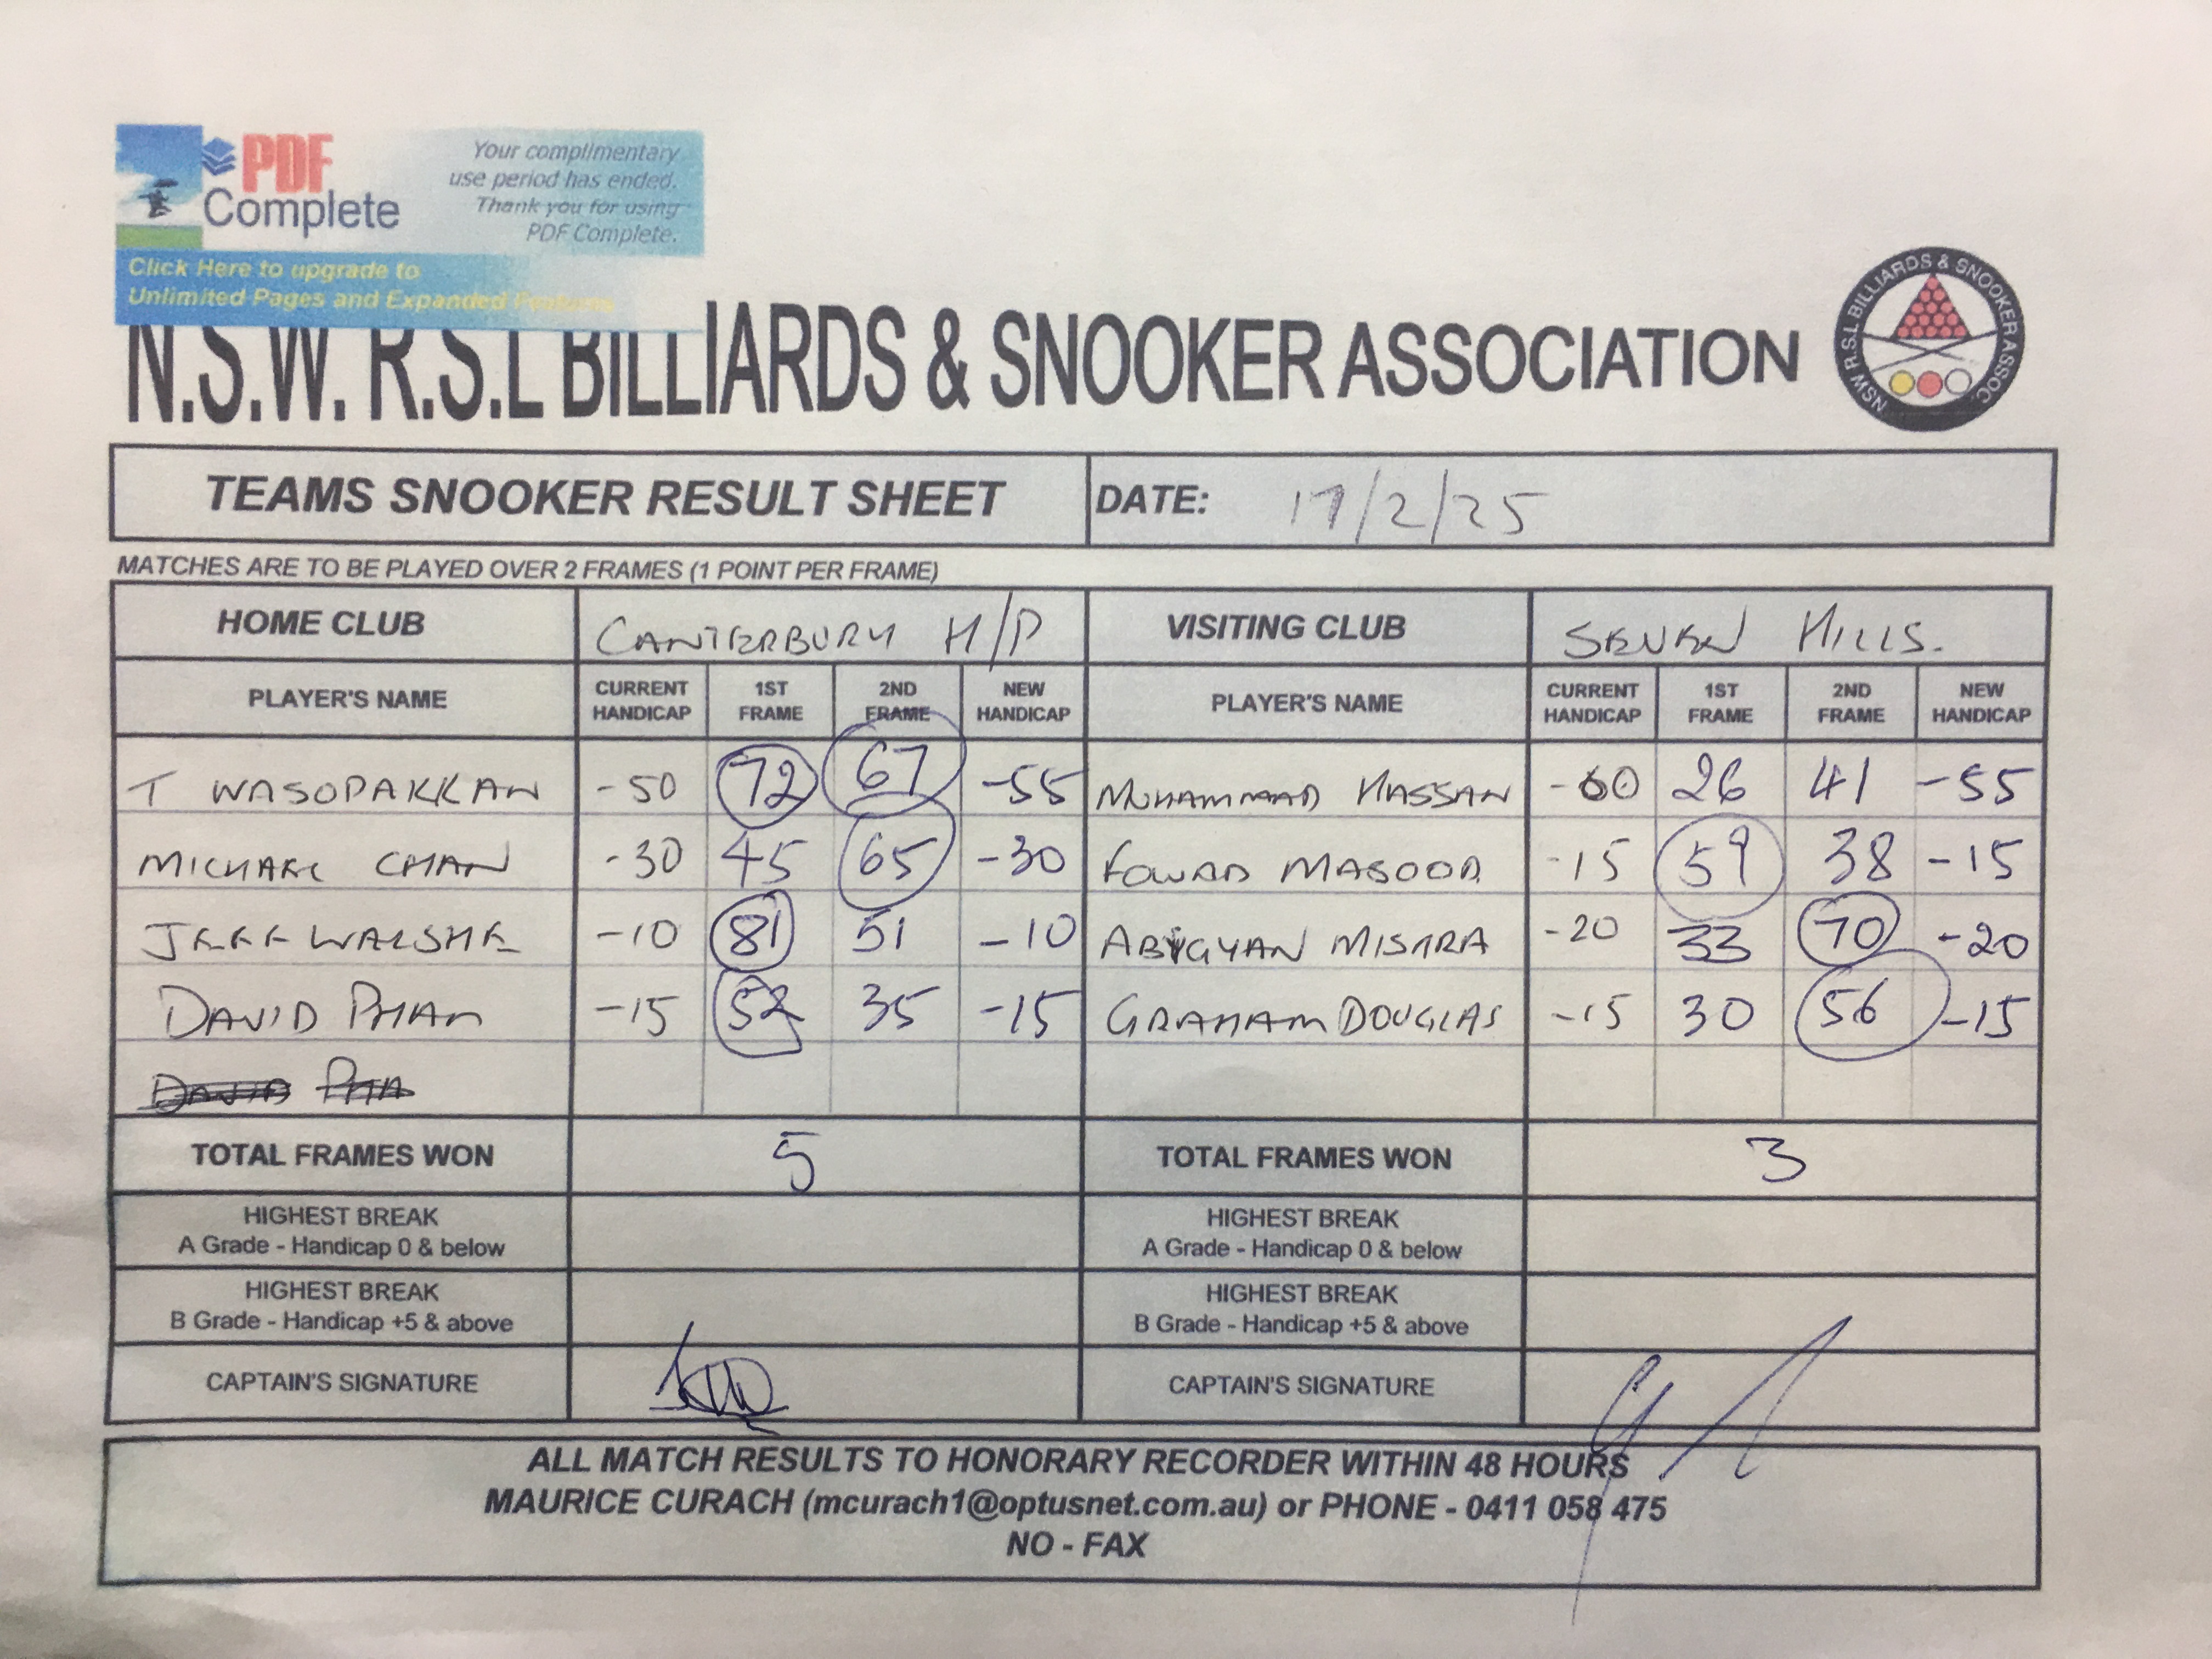 PDF Complete
Your complimentary
use period has ended.
Thank you for using
PDF Complete.
Click Here to upgrade to
Unlimited Pages and Expanded Features
N.S.W. R.S.L BILLIARDS & SNOOKER ASSOCIATION
NSW R.S.L BILLIARDS & SNOOKER ASSOC.
TEAMS SNOOKER RESULT SHEET DATE: 17/2/25
MATCHES ARE TO BE PLAYED OVER 2 FRAMES (1 POINT PER FRAME)
HOME CLUB CANTERBURY H/P VISITING CLUB SEVEN HILLS.
PLAYER'S NAME CURRENT HANDICAP 1ST FRAME 2ND FRAME NEW HANDICAP PLAYER'S NAME CURRENT HANDICAP 1ST FRAME 2ND FRAME NEW HANDICAP
T WASOPAKKAN -50 72 67 -55 MUHAMMAD HASSAN -60 26 41 -55
MICHAEL CHAN -30 45 65 -30 FOWAD MASOOD -15 59 38 -15
JEFF WALSHE -10 81 51 -10 ABIGYAN MISHRA -20 33 70 -20
DAVID PHAN -15 52 35 -15 GRAHAM DOUGLAS -15 30 56 -15
TOTAL FRAMES WON 5 TOTAL FRAMES WON 3
HIGHEST BREAK HIGHEST BREAK
A Grade - Handicap 0 & below A Grade - Handicap 0 & below
HIGHEST BREAK HIGHEST BREAK
B Grade - Handicap +5 & above B Grade - Handicap +5 & above
CAPTAIN'S SIGNATURE CAPTAIN'S SIGNATURE
ALL MATCH RESULTS TO HONORARY RECORDER WITHIN 48 HOURS
MAURICE CURACH (mcurach1@optusnet.com.au) or PHONE - 0411 058 475
NO - FAX